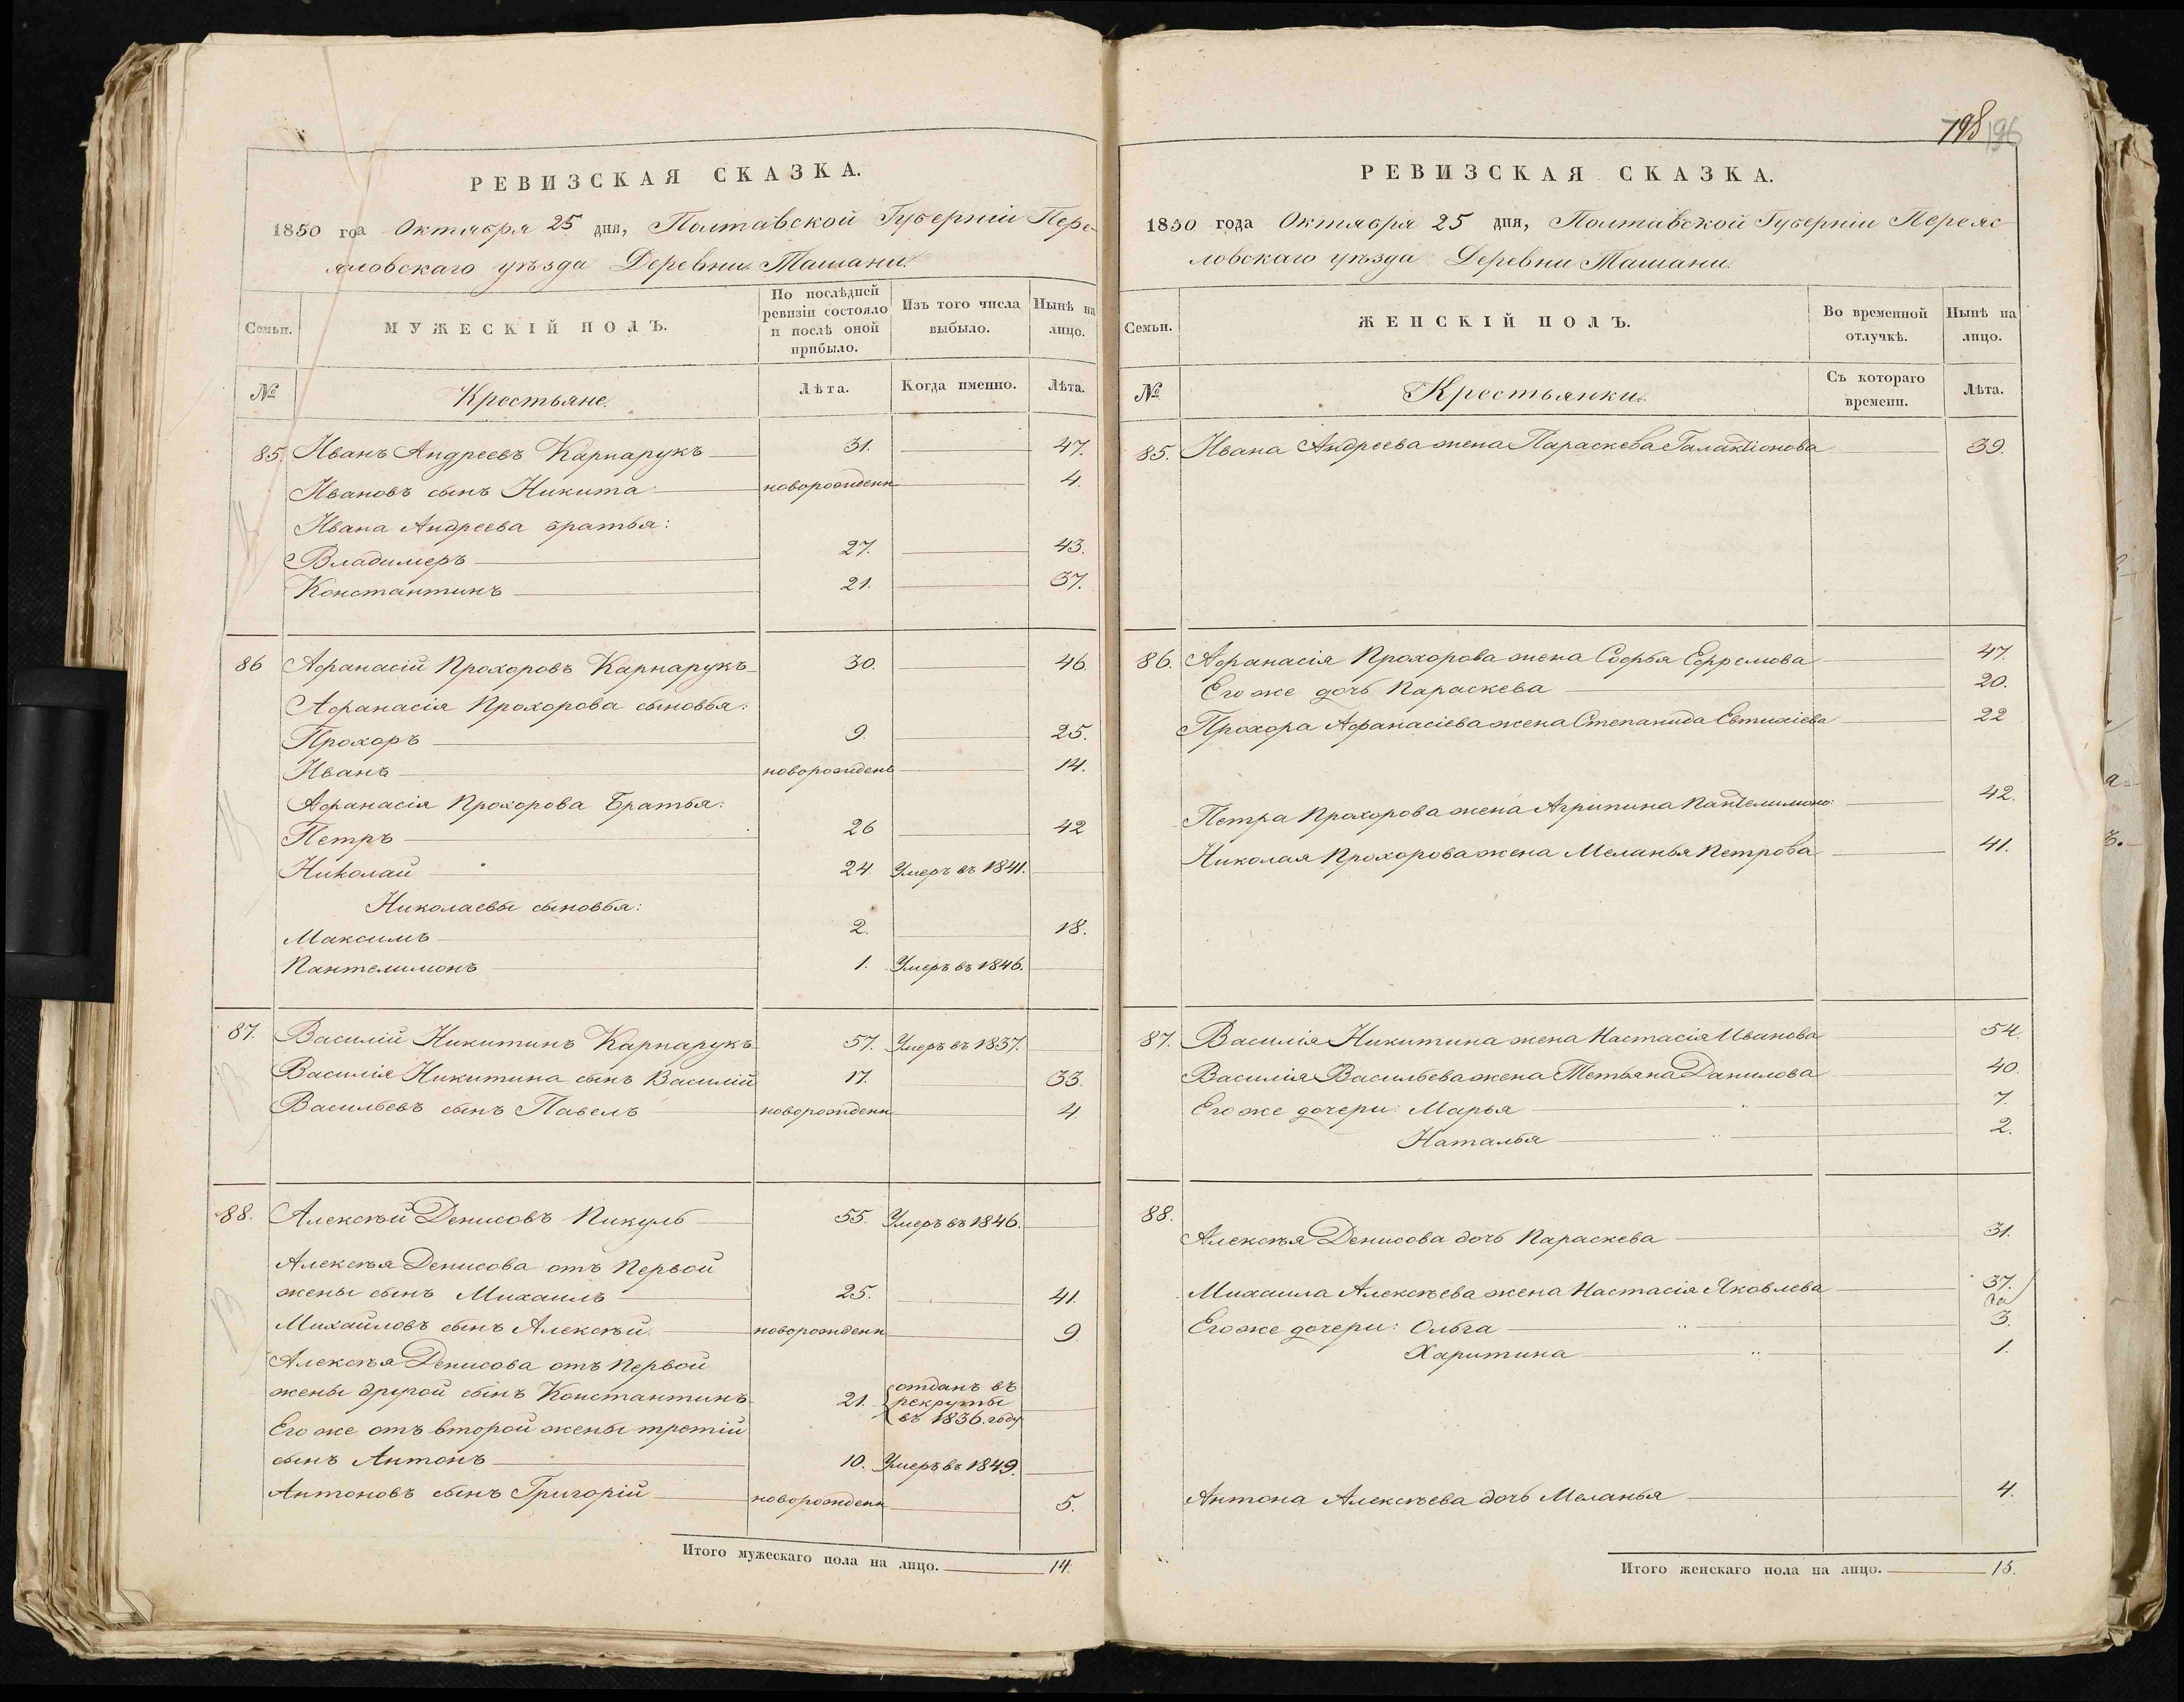 РЕВИЗСКАЯ СКАЗКА.
1850 гоа Октября 25 дня, Полтавской Губерніи Пере-
яловскаго уѣзда Деревни Ташани.
Семьи.
МУЖЕСКІЙ ПОЛЪ.
По послѣдней
ревизіи состояло
и послѣ оной
прибыло.
Изъ того числа
выбыло.
Нынѣ на
лицо.
№
Крестьяне.
Лѣта.
Когда именно.
Лѣта.
85. Иванъ Андреевъ Карнарукъ 31. 47.
Ивановъ сынъ Никита новорожденн 4.
Ивана Андреева братья:
Владимеръ 27. 43.
Константинъ 21. 37.
86 Афанасій Прохоровъ Карнарукъ 30. 46.
Афанасія Прохорова сыновья:
Прохоръ 9. 25.
Иванъ новорожден 14.
Афанасія Прохорова Братья:
Петръ 26 42
Николай 24. Умеръ въ 1841.
Николаевы сыновья:
Максимъ 2. 18.
Пантелимонъ 1. Умеръ въ 1846.
87. Василій Никитинъ Карнарукъ 57. Умеръ въ 1837.
Василія Никитина сынъ Василій 17. 33.
Васильевъ сынъ Павелъ новорожденн 4.
88. Алексѣй Денисовъ Пикуль 55. Умеръ въ 1846.
Алексѣя Денисова отъ Первой
жены сынъ Михаилъ 25. 41.
Михайловъ сынъ Алексѣй новорожденн 9.
Алексѣя Денисова отъ Первой
жены другой сынъ Константинъ 21. отданъ въ
рекруты
въ 1836. году
Его же отъ второй жены третій
сынъ Антонъ 10. Умеръ въ 1849.
Антоновъ сынъ Григорій новорожденн 5.
Итого мужескаго пола на лицо. 14.
198 196
РЕВИЗСКАЯ СКАЗКА.
1850 года Октября 25 дня, Полтавской Губерніи Переяс
ловскаго уѣзда Деревни Ташани.
Семьи.
ЖЕНСКІЙ ПОЛЪ.
Во временной
отлучкѣ.
Нынѣ на
лицо.
№
Крестьянки.
Съ котораго
времени.
Лѣта.
85. Ивана Андреева жена Параскева Галактіонова 39.
86. Афанасія Прохорова жена Софья Ефремова 47.
Его же дочь Параскева 20.
Прохора Афанасіева жена Степанида Евтихіева 22
Петра Прохорова жена Агрипина Пантелимоно: 42.
Николая Прохорова жена Меланья Петрова 41.
87. Василія Никитина жена Настасія Иванова 54.
Василія Васильева жена Тетьяна Данилова 40.
Его же дочери: Марья 7.
Наталья 2.
88.
Алексѣя Денисова дочь Параскева 31.
Михаила Алексѣева жена Настасія Яковлева 37.
Его же дочери: Ольга 3.
Харитина 1.
Антона Алексѣева дочь Меланья 4.
Итого женскаго пола на лицо. 15.